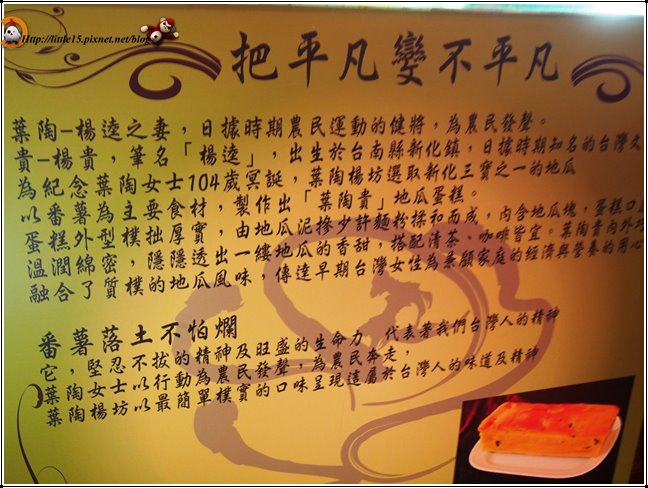 Http://little15.pixnet.net/blog
把平凡變不平凡
葉陶—楊逵之妻，日據時期農民運動的健將，為農民發聲。
貴—楊貴，筆名「楊逵」，出生於台南縣新化鎮，日據時期知名的台灣文
為紀念葉陶女士104歲冥誕，葉陶楊坊選取新化三寶之一的地瓜
以番薯為主要食材，製作出「葉陶貴」地瓜蛋糕。
蛋糕外型樸拙厚實，由地瓜泥摻少許麵粉揉和而成，內含地瓜塊，蛋糕口
溫潤綿密，隱隱透出一縷地瓜的香甜，搭配清茶、咖啡皆宜。葉陶貴內外
融合了質樸的地瓜風味，傳達早期台灣女性為兼顧家庭的經濟與營養的用心
番薯落土不怕爛
它，堅忍不拔的精神及旺盛的生命力，代表著我們台灣人的精神
葉陶女士以行動為農民發聲，為農民奔走，
葉陶楊坊以最簡單樸實的口味呈現這屬於台灣人的味道及精神